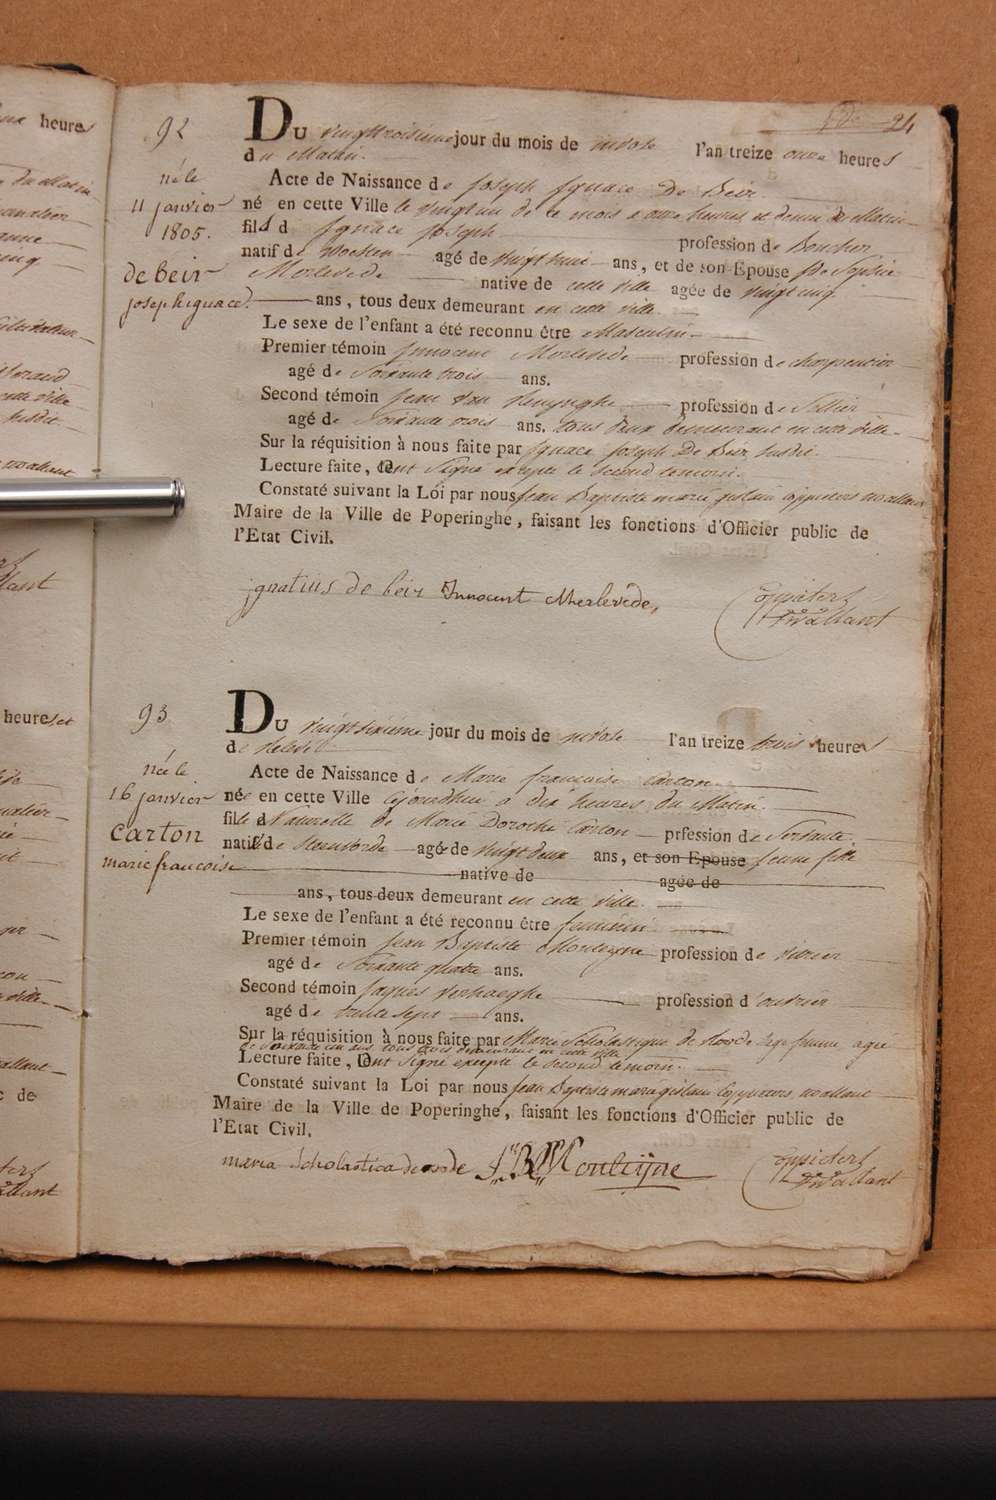 heures
heures et
de
24
92
Du vingttroisieme jour du mois de nivose l'an treize onze heures
du Matin.
né le
11 janvier
1805.
de beir
joseph ignace.
Acte de Naissance de Joseph Ignace De Beir
né en cette Ville le vingt un de ce mois a onze heures et demi du Matin
fils d Ignace Joseph profession de Boucher
natif de Woesten agé de vingt huit ans, et de son Epouse Sophie
Merlevede native de cette ville agée de vingt cinq
ans, tous deux demeurant en cette ville.
Le sexe de l'enfant a été reconnu être Masculin.
Premier témoin Innocent Merlevede profession de charpentier
agé de Soixante trois ans.
Second témoin Jean Van profession de Sellier
agé de Soixante trois ans. tous deux demeurant en cette ville.
Sur la réquisition à nous faite par Ignace Joseph De Beir susdit.
Lecture faite, Ont Signé excepté le Second temoin.
Constaté suivant la Loi par nous Jean Baptiste marie
Maire de la Ville de Poperinghe, faisant les fonctions d'Officier public de
l'Etat Civil.
ignatius de beir Innocent Merlevede,
93
Du vingtsixieme jour du mois de nivose l'an treize trois heures
de Relevée
née le
16 janvier
carton
marie francoise
Acte de Naissance de Marie françoise Carton
née en cette Ville cejourdhui a dix heures du Matin.
fille Naturelle de Marie Dorothé Carton prfession de Servante
natif de Steenvorde agé de vingt deux ans, et son Epouse jeune fille
native de agée de
ans, tous deux demeurant en cette ville.
Le sexe de l'enfant a été reconnu être feminin
Premier témoin Jean Baptiste Monteyne profession de vitrier
agé de Soixante quatre ans.
Second témoin Jaques Verhaeghe profession d'ouvrier
agé de trente sept ans.
Sur la réquisition à nous faite par Marie Scholastique de Roo Sage femme agée
de Soixante un ans tous trois demeurant en cette ville
Lecture faite, Ont Signé excepté le Second temoin.
Constaté suivant la Loi par nous Jean Baptiste marie
Maire de la Ville de Poperinghe, faisant les fonctions d'Officier public de
l'Etat Civil.
maria Scholastica J B Monteijne